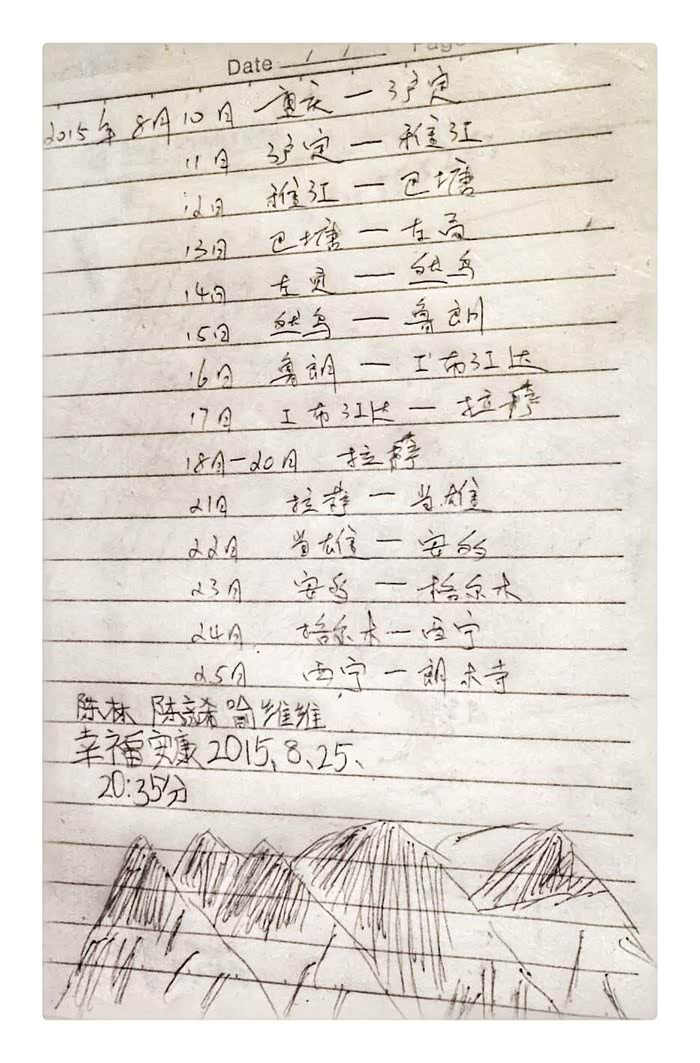 Date / /
2015年8月10日 重庆—泸定
11日 泸定—雅江
12日 雅江—巴塘
13日 巴塘—左贡
14日 左贡—然乌
15日 然乌—鲁朗
16日 鲁朗—工布江达
17日 工布江达—拉萨
18日-20日 拉萨
21日 拉萨—当雄
22日 当雄—安多
23日 安多—格尔木
24日 格尔木—西宁
25日 西宁—朗木寺
陈林 陈 喻维维
幸福安康2015、8、25、
20:35分